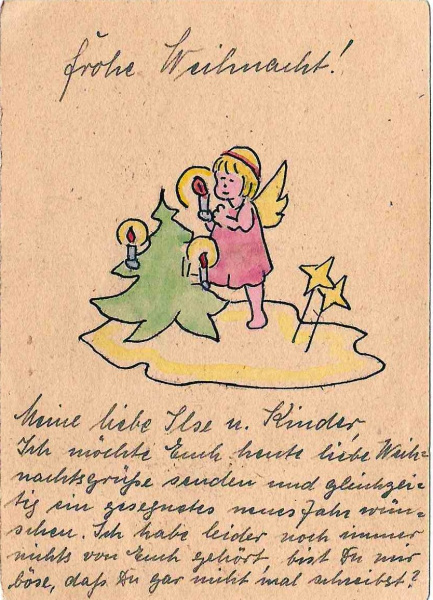 Frohe Weihnacht!
Meine liebe Ilse u. Kinder,
Ich möchte Euch heute liebe Weih-
nachtsgrüße senden und gleichzei-
tig ein gesegnetes neues Jahr wün-
schen. Ich habe leider noch immer
nichts von Euch gehört, bist Du mir
böse, daß Du gar nicht mal schreibst?